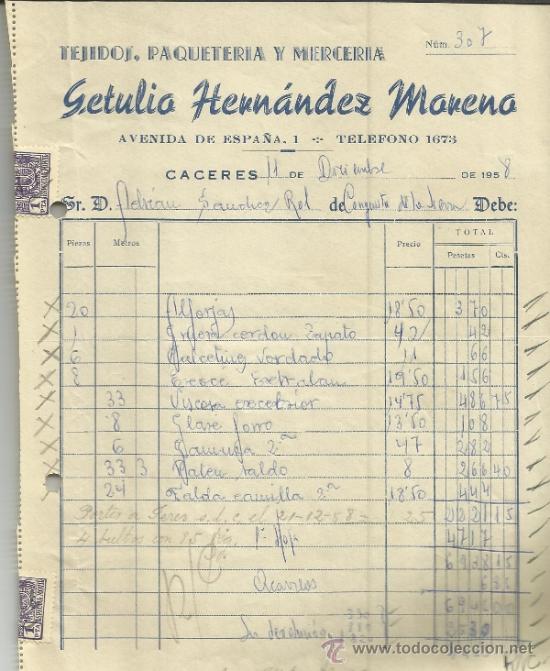 TEJIDOS, PAQUETERIA Y MERCERIA
Núm. 307
Getulio Hernández Moreno
AVENIDA DE ESPAÑA, 1 TELEFONO 1673
CACERES 11 DE Diciembre DE 1958
Sr. D. Adrián Sanchez Rol de Conquista de la Sierra Debe:
Piezas Metros Precio TOTAL
Pesetas Cts.
20 Alforjas 18'50 370
1 cordon Zapato 42 42
6 Calcetines bordado 11 66
8 19'50 156
33 Viscosa excelsior 14'75 486 75
8 Glase forro 13'50 108
6 Gamuza 2ª 47 282
33 3 faldo 8 266 40
24 Falda camilla 2ª 18'50 444
Portes a 21-12-58 25 2221 15
4 bultos con 85 1ª Hoja 4717
6938 15
Acarreos
todocoleccion.net